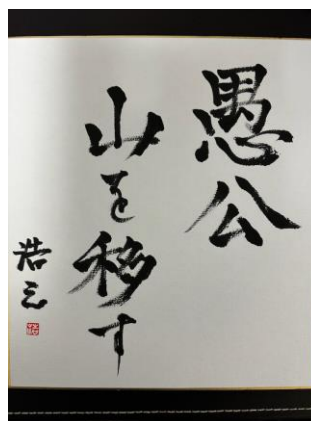 愚公
山を移す
浩三